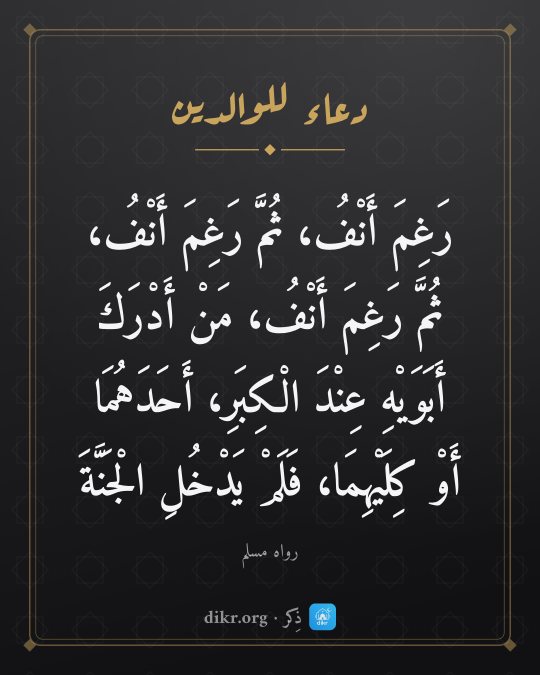 دعاء للوالدين
رَغِمَ أَنْفُ، ثُمَّ رَغِمَ أَنْفُ،
ثُمَّ رَغِمَ أَنْفُ، مَنْ أَدْرَكَ
أَبَوَيْهِ عِنْدَ الْكِبَرِ، أَحَدَهُمَا
أَوْ كِلَيْهِمَا، فَلَمْ يَدْخُلِ الْجَنَّةَ
رواه مسلم
ذِكر · dikr.org
dikr